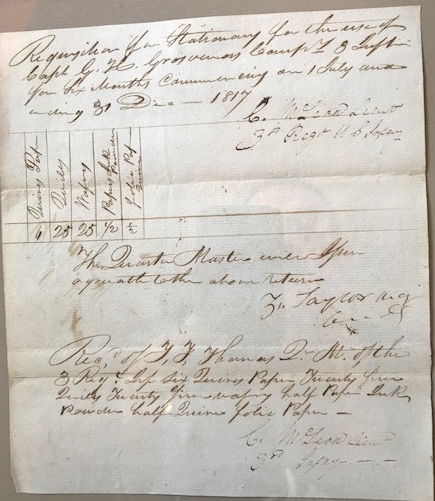 Requisition for Stationary for the use of
Capt G. H. Grosvenors Comp.y 3 Inft
for Six Months Commencing on 1 July and
ending 31 Dec – 1817
C. McLeod Lieut
3d Regt U S Infay
Quires Pap
Quills
Wafers
Papers Ink Powder
folio Pap Quire
6 25 25 1/2 1/2
The Quarter Master will Issue
agreeable to the above return
Z. Taylor
Rec.d of J. J. Thomas Q. M. of the
3 Reg.t Inf Six Quires Paper Twenty five
Quills Twenty five wafers half Paper Ink
Powder half Quire folio Paper –
C. McLeod Lieut
3rd Infay – –